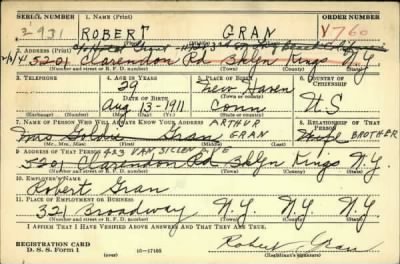 SERIAL NUMBER 1. NAME (Print) ORDER NUMBER
2931 ROBERT GRAN V760
(First) (Middle) (Last)
2. ADDRESS (Print)
5201 Clarendon Rd Bklyn Kings N.Y.
(Number and street or R. F. D. number) (Town) (County) (State)
3. TELEPHONE 4. AGE IN YEARS 5. PLACE OF BIRTH 6. COUNTRY OF CITIZENSHIP
29 New Haven
DATE OF BIRTH (Town or county)
Aug 13-1911 Conn U S
(Exchange) (Number) (Mo.) (Day) (Yr.) (State or country)
7. NAME OF PERSON WHO WILL ALWAYS KNOW YOUR ADDRESS ARTHUR 8. RELATIONSHIP OF THAT PERSON
Mrs Goldie Gran GRAN Wife BROTHER
(Mr., Mrs., Miss) (First) (Middle) (Last)
9. ADDRESS OF THAT PERSON 423 VAN SICLEN AVE
5201 Clarendon Rd Bklyn Kings N.Y.
(Number and street or R. F. D. number) (Town) (County) (State)
10. EMPLOYER'S NAME
Robert Gran
11. PLACE OF EMPLOYMENT OR BUSINESS
321 Broadway N.Y. N.Y. N.Y.
(Number and street or R. F. D. number) (Town) (County) (State)
I AFFIRM THAT I HAVE VERIFIED ABOVE ANSWERS AND THAT THEY ARE TRUE.
REGISTRATION CARD
D. S. S. Form 1 16—17105 Robert Gran
(Registrant's signature)